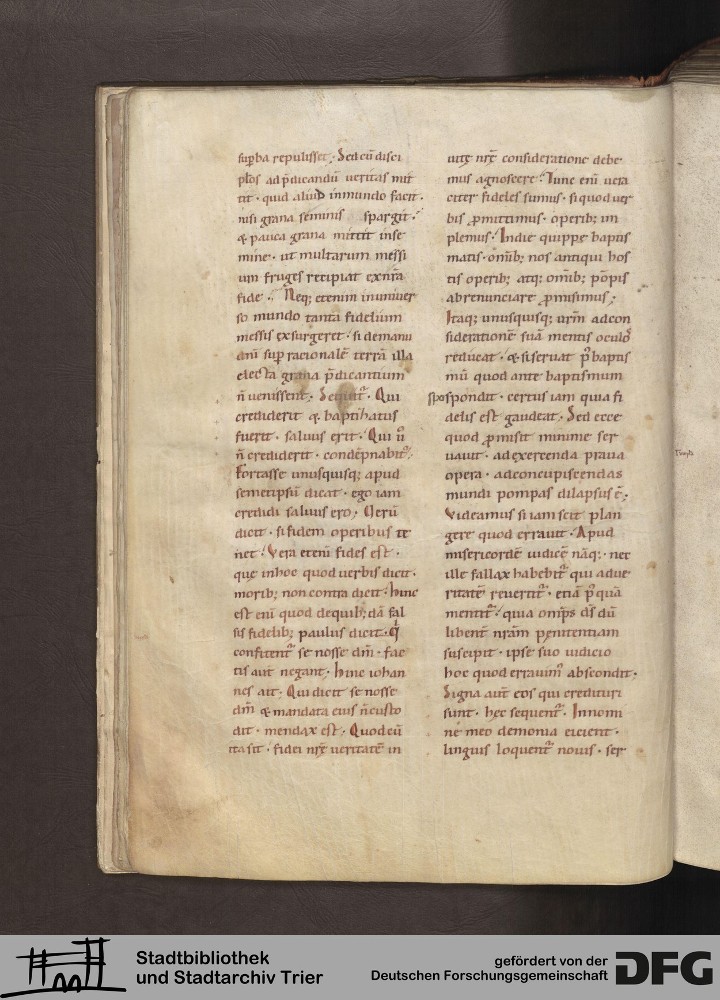 supba repulisset. Sed cū disci
plos ad p̄dicandū veritas mit
tit. quid aliuD in mundo facit.
nisi grana seminis spargit.
& pauca grana mittit in se
mine. ut multarum messi
um fruges recipiat ex nr̄a
fide. Neq; etenim in univer
so mundo tanta fidelium
messis exsurgeret. si de manu
dn̄i sup racionalē terrā illa
electa grana p̄dicantium
n̄ venissent. Sequit᷑. Qui
crediderit & baptizatus
fuerit. salvus erit. Qui ū
n̄ crediderit. condēpnabit᷑.
Fortasse unusquisq; apud
semetipsū dicat. ego iam
credidi salvus ero. Verū
dicit. si fidem operibus te
net. Vera etenī fides est.
que in hoc quod verbis dicit.
morib; non contra dicit. hinc
est enī quod de quib;dā fal
sis fidelib; paulus dicit. q̇
confitent᷑ se nosse dm̄. fac
tis aut negant. hinc iohan
nes ait. Qui dicit se nosse
dm̄ & mandata eius n̄ custo
dit. mendax est. Quod cū
ita sit. fidei nrę veritatē in
vitę nrę consideratione debe
mus agnoscere. Tunc enī vera
citer fideles sumus. si quod ver
bis ꝓmittimus. operib; im
plemus. In die quippe baptis
matis. omīb; nos antiqui hos
tis operib; atq; omīb; pōpis
abrenunciare ꝓmisimus.
Itaq; unusquisq; urm̄ ad con
siderationē suā mentis oculos
reducat. & si servat p̊ baptis
mū quod ante baptismum
spospondit. certus iam quia fi
delis est gaudeat. Sed ecce
quod ꝓmisit minime ser
vavit. ad exercenda prava
opera. ad concupiscendas
mundi pompas dilapsus ē.
Videamus si iam scit plan
gere quod erravit. Apud
misericordē iudicē nāq;. nec
ille fallax habebit᷑ qui ad ve
ritatē revertit᷑. etiā p̊quā
mentit᷑. quia omp̄s ds̄ dū
libent̄ nrām penitentiam
suscipit. ipse suo iudicio
hoc quod erravim᷒ abscondit.
Signa aut̄ eos qui credituri
sunt. hęc sequent᷑. In nomi
ne meo demonia eicient.
linguis loquent᷑ novis. ser
Stadtbibliothek
und Stadtarchiv Trier
gefördert von der
Deutschen Forschungsgemeinschaft
DFG